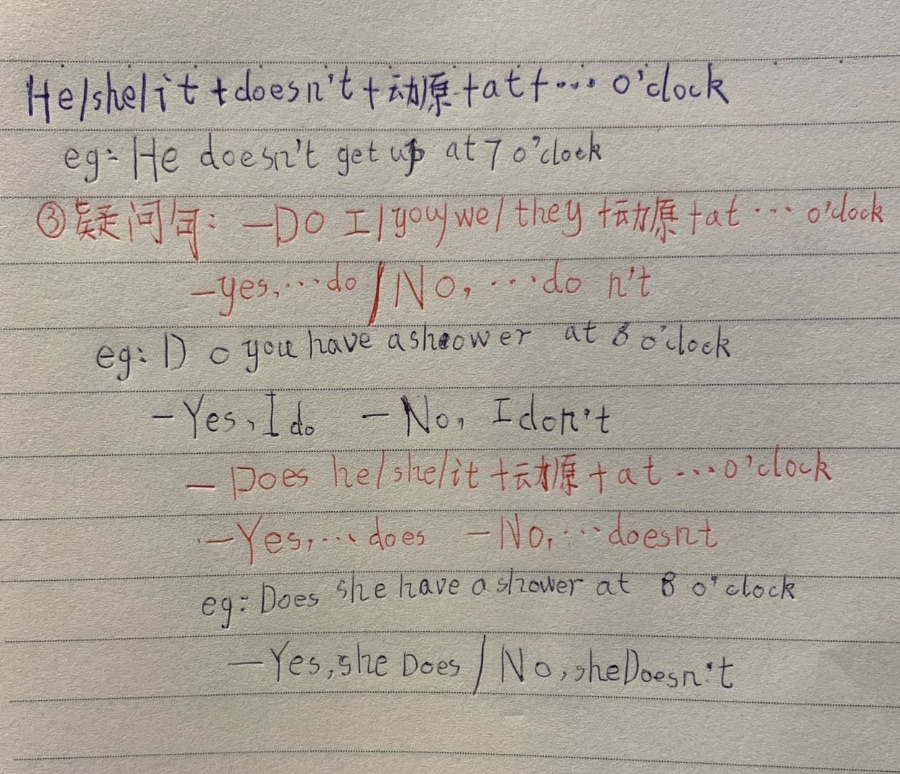 He/she/it + doesn't + 动原 + at + ... o'clock
eg: He doesn't get up at 7 o'clock
③疑问句: —Do I/you/we/they + 动原 + at ... o'clock
—yes, ... do / No, ... do n't
eg: Do you have a shoower at 8 o'clock
— Yes, I do — No, I don't
— Does he/she/it + 动原 + at ... o'clock
— Yes, ... does — No, ... doesnt
eg: Does she have a shower at 8 o'clock
— Yes, she Does / No, she Doesn't